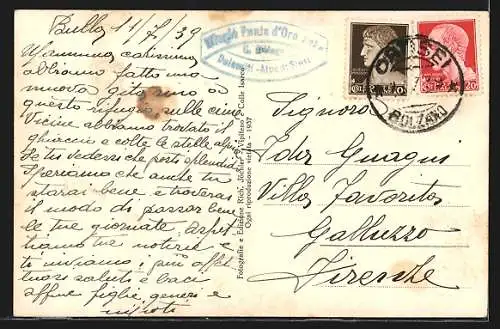 Bulla 11/7/39
Mammina carissima
abbiamo fatto una
nuova gita, sino a
questo rifugio, sulle cime
vicine abbiamo trovato il
ghiaccio e colte le stelle alpine
se tu vedessi che posti splendidi
Speriamo che anche tu
starai bene e troverai
il modo di passar bene
le tue giornate. Aspet
tiamo tue notizie e
ti inviamo i più affet
tuosi saluti e baci
figlie, generi e
nipoti
Rifugio Punta d'Oro
Dolomiti - Alpe di Siusi
Fotografie e Edizione Rich. Vipiteno e Colle Isarco
Ogni riproduzione vietata - 1937
ORTISEI
BOLZANO
Signora
Ider Guagni
Villa Favorita
Galluzzo
Firenze